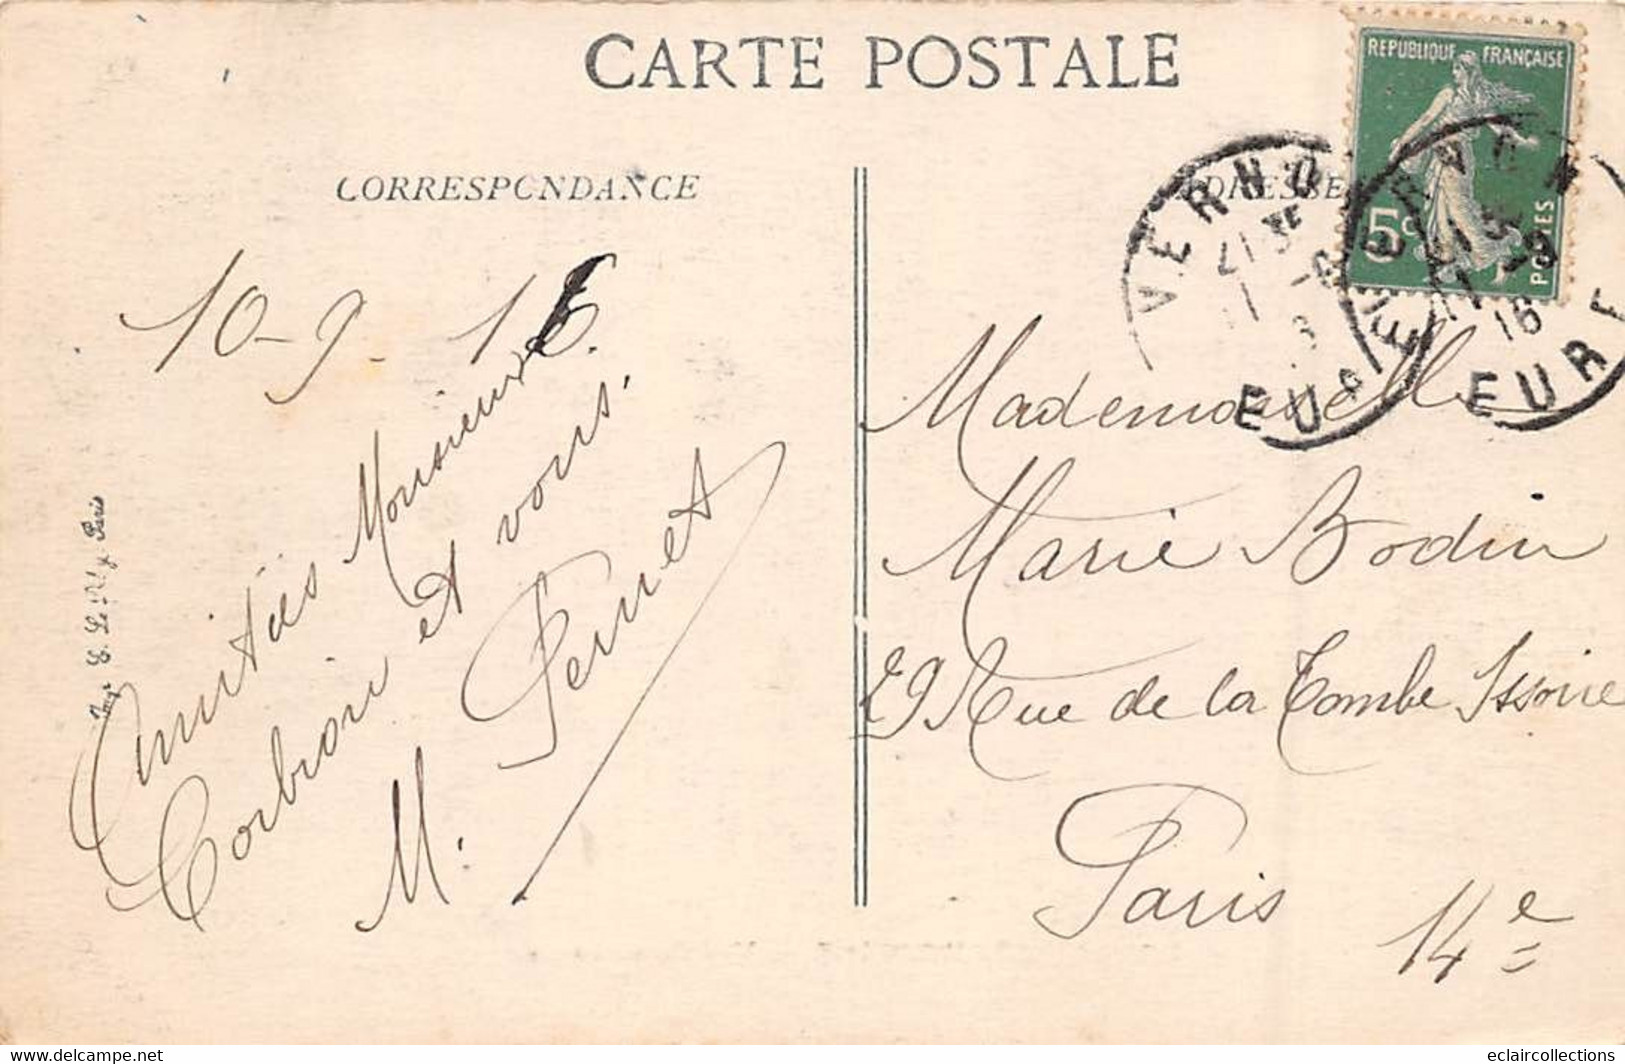 CARTE POSTALE
CORRESPONDANCE
ADRESSE
RÉPUBLIQUE FRANÇAISE
5c
POSTES
VERNON
EURE
VERNON
16
EURE
10-9-16.
Amitiés Monsieur
Corbion et vous.
M. Pernet
Mademoiselle
Marie Bodin
29 Rue de la Tombe Issoire
Paris
14e
Imp. E. Le Paris
delcampe.net
eclaircollections